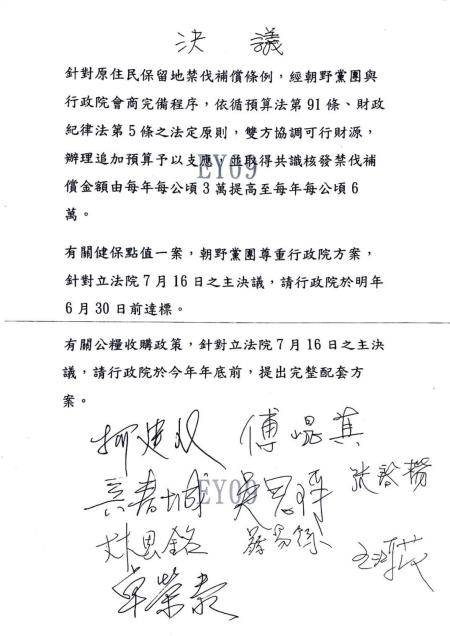 決議
針對原住民保留地禁伐補償條例，經朝野黨團與
行政院會商完備程序，依循預算法第91條、財政
紀律法第5條之法定原則，雙方協調可行財源，
辦理追加預算予以支應，並取得共識核發禁伐補
EY09
償金額由每年每公頃3萬提高至每年每公頃6
萬。
有關健保點值一案，朝野黨團尊重行政院方案，
針對立法院7月16日之主決議，請行政院於明年
6月30日前達標。
有關公糧收購政策，針對立法院7月16日之主決
議，請行政院於今年年底前，提出完整配套方
案。
柯建 傅崐萁
吳春城 吳思瑤 張啓楷
EY09
林思銘
卓榮泰